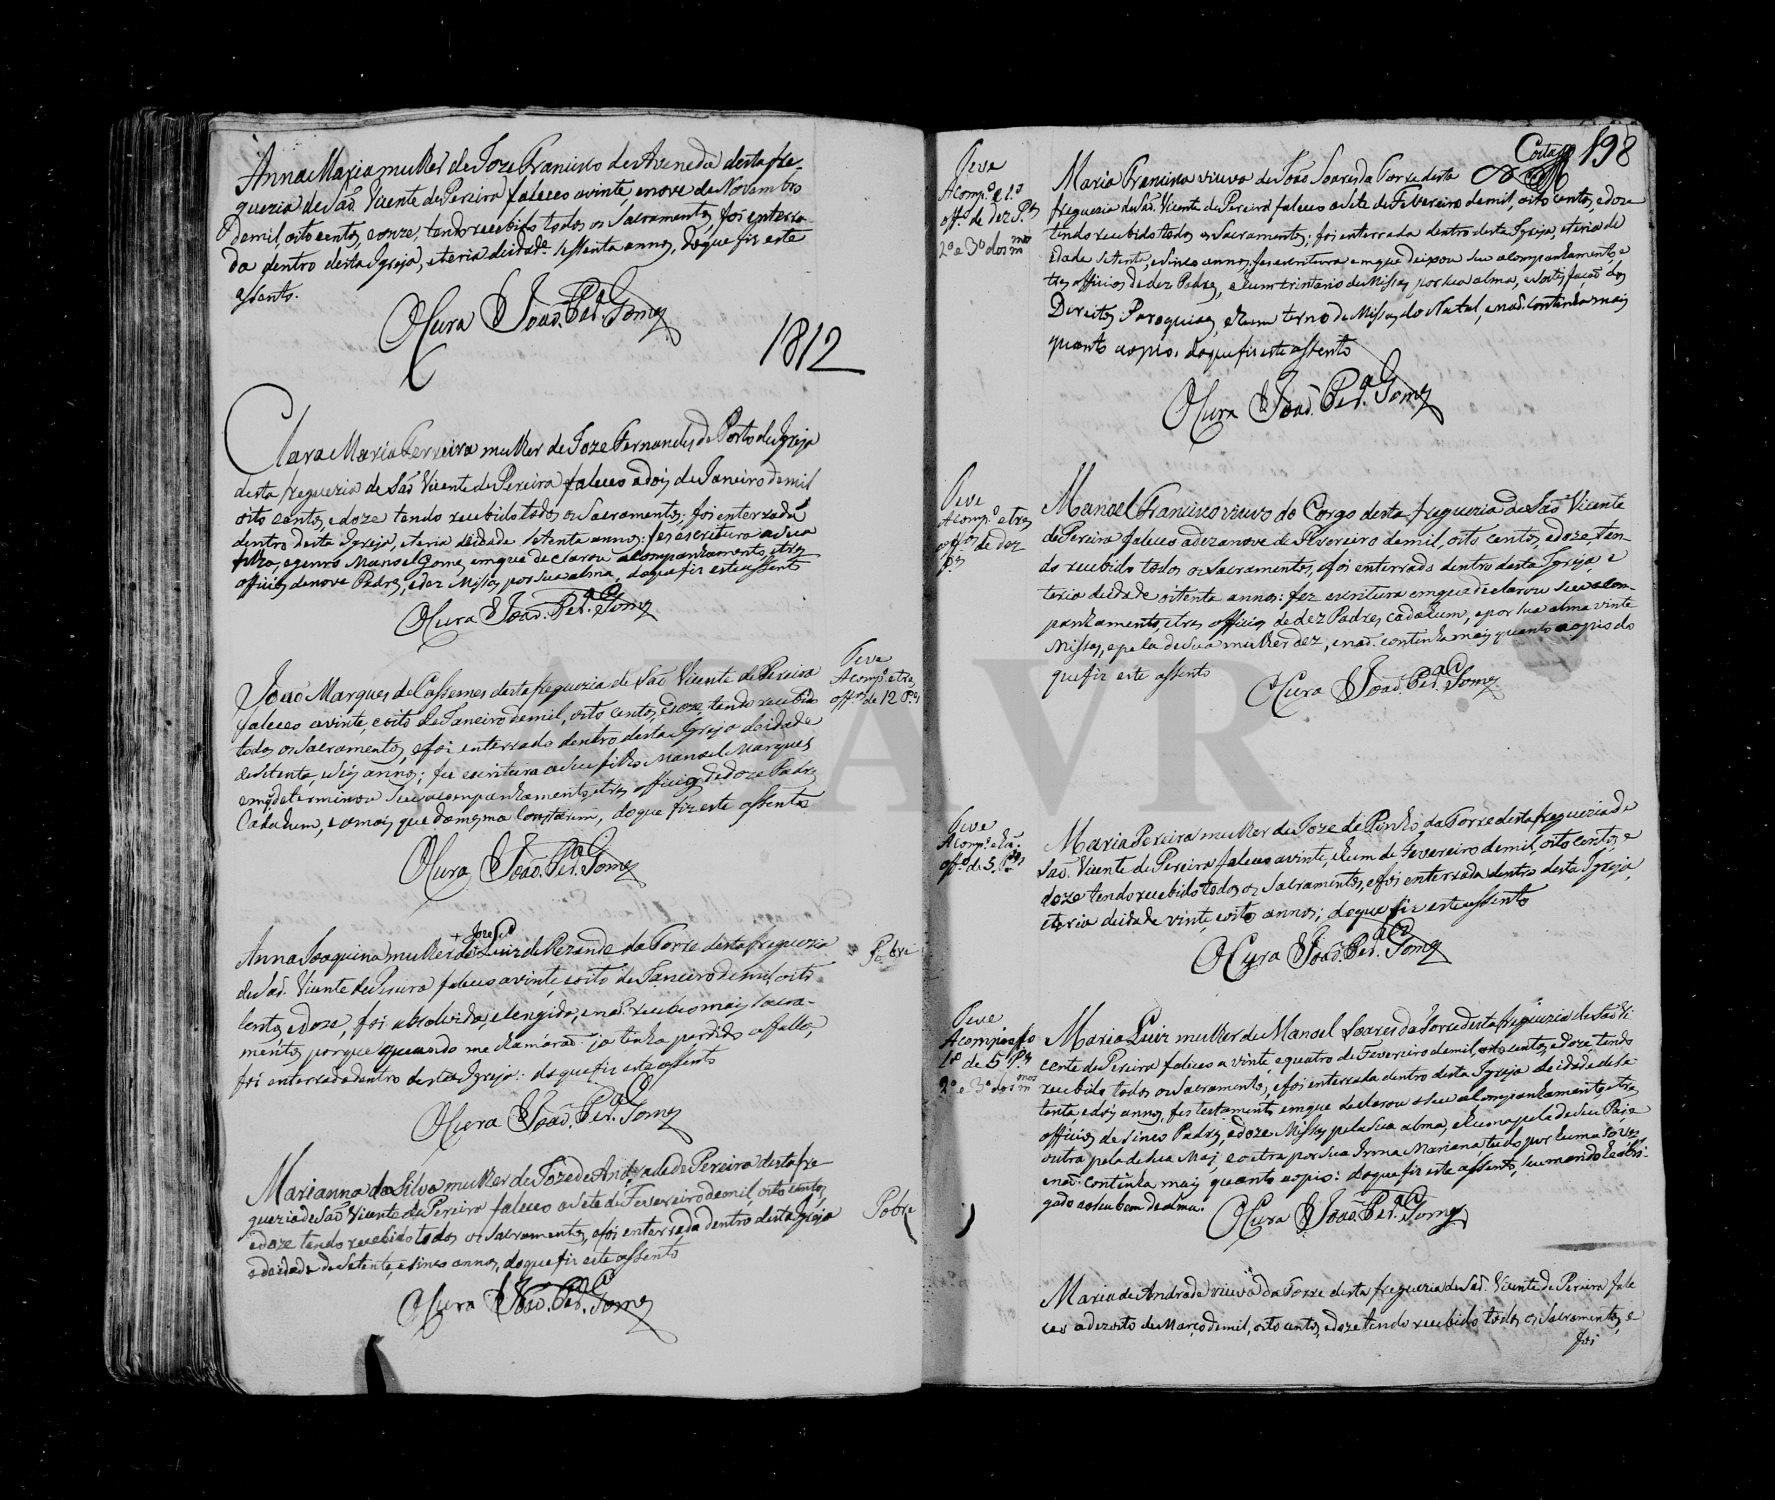 Anna Maria mulher de Joze Francisco de Azeneda desta fre-
guezia de Saõ Vicente de Pereira faleceo a vinte, e nove de Novembro
de mil, oito centos, e onze, tendo recebido todos os Sacramentos, foi enterra-
da dentro desta Igreja, e teria de idade sessenta annos, do que fiz este
assento.
O Cura Joaõ Per.ª Gomes
1812
Clara Maria Ferreira mulher de Joze Fernandes do Porto de Igreja
desta freguezia de Saõ Vicente de Pereira faleceo a dois de Janeiro de mil
oito centos, e doze tendo recebido todos os Sacramentos, foi enterrada
dentro desta Igreja, e teria de idade setenta annos: fes escritura a sua
filha, e genro Manoel Gomes, em que declarou acompanhamento, e tres
officios de nove Padres, e dez Missas por sua alma, do que fiz este assento
O Cura Joaõ Per.ª Gomes
Teve
Acomp.º e tres
off.os de 12 P.es
Joaõ Marques de Cassemes desta freguezia de Saõ Vicente de Pereira
faleceo a vinte, e oito de Janeiro de mil, oito centos, e doze, tendo recebido
todos os Sacramentos, e foi enterrado dentro desta Igreja de idade
de setenta, e seis annos; fez escritura a seu filho Manoel Marques
em q determinou seu acompanhamento, e tres officios de doze Padres
Cada hum, e o mais que da mesma Constar, do que fiz este assento
O Cura Joaõ Per.ª Gomes
Joze
Anna Joaquina mulher de Luis de Rezende da Torre desta freguezia
Pobre
de Saõ Vicente de Pereira faleceo a vinte, e oito de Janeiro de mil, oito
centos, e doze, foi absolvida, e Ungida, e naõ recebeo mais Sacra-
mentos porque quando me chamáraõ já tinha perdido a falla,
foi enterrada dentro desta Igreja: do que fiz este assento
O Cura Joaõ Per.ª Gomes
Marianna da Silva mulher de Joze de Andrade de Pereira desta fre-
guezia de Saõ Vicente de Pereira faleceo a sete de Fevereiro de mil, oito centos,
e doze tendo recebido todos os Sacramentos, e foi enterrada dentro desta Igreja
Pobre
e de idade de setenta, e sinco annos, do que fiz este assento
O Cura Joaõ Per.ª Gomes
198
Teve
Acomp.º e 1.º
off.º de dez P.es
2.º e 3.º dos m.mos
Maria Francisca viuva de Joaõ Soares da Torre desta
freguezia de Saõ Vicente de Pereira faleceo a sete de Fevereiro de mil, oito centos, e doze
tendo recebido todos os Sacramentos; foi enterrada dentro desta Igreja, e teria de
idade setenta, e sinco annos; fes escritura em que deixou seu acompanhamento, e
tres officios de dez Padres, e hum trintario de Missas por sua alma, e satisfaçaõ dos
Direitos Paroquiaes, e hum terno de Missas do Natal, e naõ continha mais
quanto ao pio. do que fiz este assento
O Cura Joaõ Per.ª Gomes
Teve
Acomp.º e tres
off.os de dez
P.es
Manoel Francisco viuvo do Corgo desta freguezia de Saõ Vicente
de Pereira faleceo a dezanove de Fevereiro de mil, oito centos, e doze, ten-
do recebido todos os Sacramentos, e foi enterrado dentro desta Igreja, e
teria de idade oitenta annos: fez escritura em que declarou seu acom-
panhamento, e tres officios de dez Padres cada hum, e por sua alma vinte
Missas, e pela de sua mulher dez, e naõ continha mais quanto ao pio do
que fiz este assento
O Cura Joaõ Per.ª Gomes
Teve
Acomp.º e hũ
off.º de 5 P.es
Maria Pereira mulher de Joze de Pinho da Torre desta freguezia de
Saõ Vicente de Pereira faleceo a vinte, e hum de Fevereiro de mil, oito centos, e
doze tendo recebido todos os Sacramentos, e foi enterrada dentro desta Igreja,
e teria de idade vinte, e oito annos; do que fiz este assento
O Cura Joaõ Per.ª Gomes
Teve
1.º de 5 P.es
2.º e 3.º dos m.mos
Maria Luiz mulher de Manoel Soares da Torre desta freguezia de Saõ Vi-
cente de Pereira faleceo a vinte, e quatro de Fevereiro de mil, oito centos, e doze, tendo
recebido todos os Sacramentos, e foi enterrada dentro desta Igreja de idade de se-
tenta e dois annos, fes testamento em que declarou o seu acompanhamento, e tres
officios de sinco Padres, e doze Missas pela sua alma, e huma pela de seu Pai, e
outra pela de sua Mai, e outra por sua Irma Mariana, tudo por huma só vez
e naõ continha mais quanto ao pio: do que fiz este assento, seu marido he obri-
gado ao seu bem de alma.
O Cura Joaõ Per.ª Gomes
Maria de Andrade viuva da Torre desta freguezia de Saõ Vicente de Pereira fale-
ceo a dezoito de Março de mil, oito centos, e doze tendo recebido todos os Sacramentos, e
foi
AVR